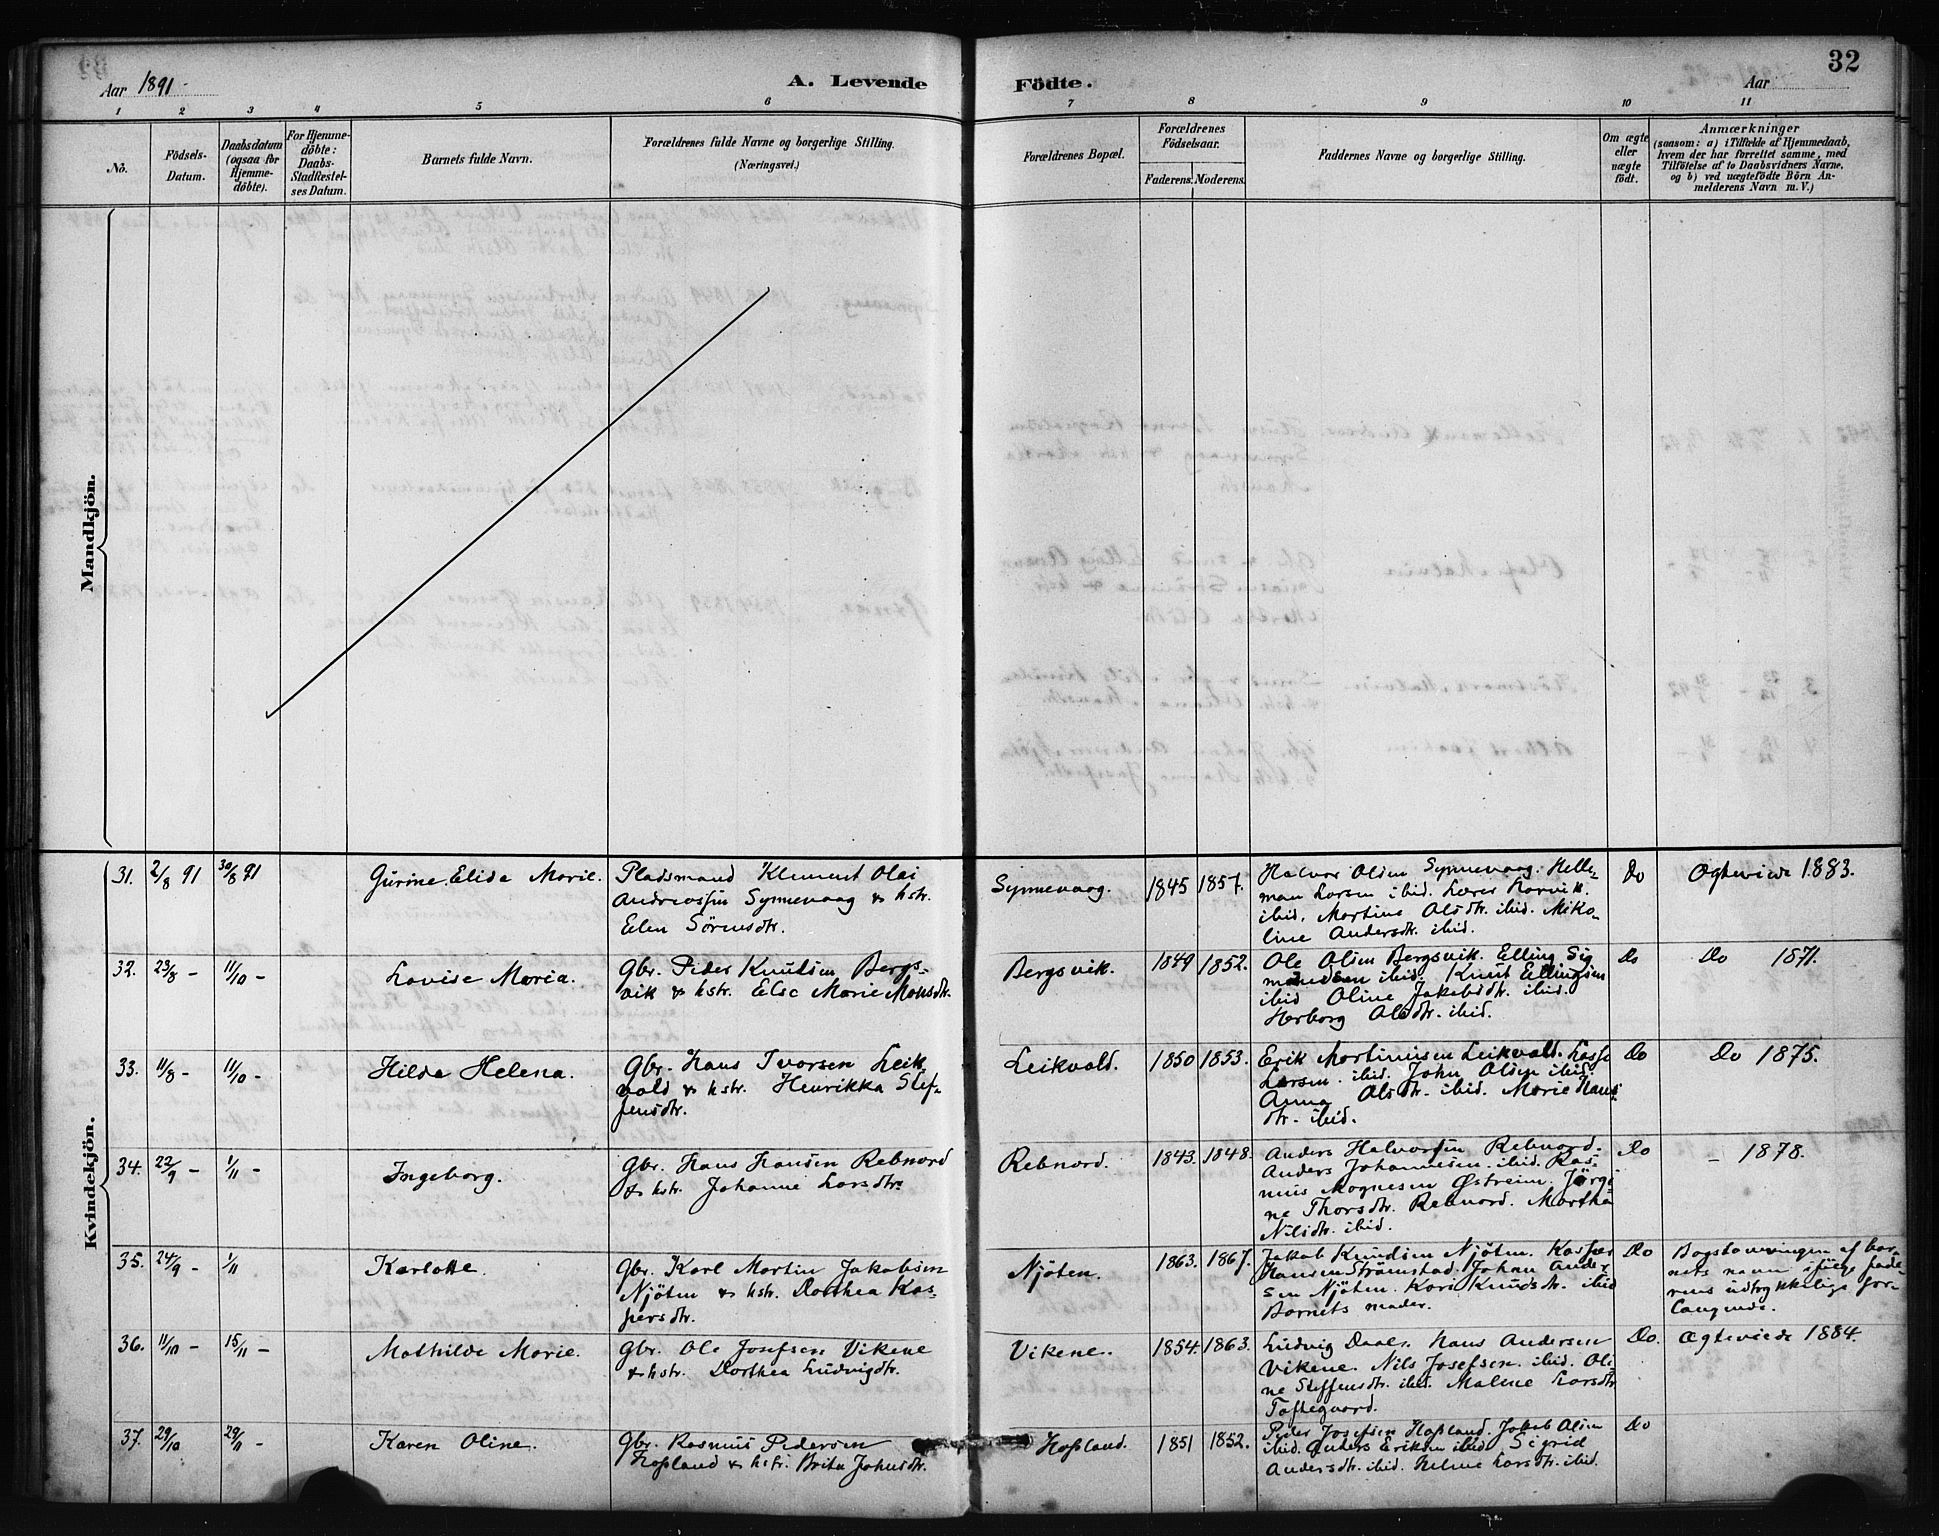 Aar 1891.
A. Levende Födte.
Aar
32
1 2 3 4 5 6 7 8 9 10 11
No.
Födsels-
Datum.
Daabsdatum
(ogsaa for
Hjemme-
döbte).
For Hjemme-
döbte:
Daabs-
Stadfæstel-
ses Datum.
Barnets fulde Navn.
Forældrenes fulde Navne og borgerlige Stilling.
(Næringsvei.)
Forældrenes Bopæl.
Forældrenes
Födselsaar.
Faderens. Moderens.
Faddernes Navne og borgerlige Stilling.
Om ægte
eller
uægte
födt.
Anmærkninger
(saasom: a) i Tilfælde af Hjemmedaab,
hvem der har forrettet samme, med
Tilföielse af to Daabsvidners Navne,
og b) ved uægtefödte Börn An-
melderens Navn m. V.)
Mandkjön.
Kvindekjön.
31. 2/8 91 30/8 91
Gurine Elida Marie.
Pladsmand Klement Olai
Andreassen Synnevaag & hstr.
Elen Sörensdtr.
Synnevaag.
1845 1857.
Halvor Olsen Synnevaag. Helle-
man Larsen ibid. Lærer Larvik.
ibid. Martine Olsdtr. ibid. Miko-
line Andersdtr. ibid.
Do
Ægteviede 1883.
32. 23/8 - 11/10 -
Lovise Maria.
Gbr. Peder Knudsen Bergs-
vik & hstr. Else Marie Monsdtr.
Bergsvik.
1849 1852.
Ole Olsen Bergsvik. Elling Sig
mundsen ibid. Knut Ellingsen
ibid Oline Jakobsdtr. ibid.
Herborg Olsdtr. ibid.
Do
Do 1871.
33. 11/8 - 11/10 -
Hilda Helena.
Gbr. Hans Ivarsen Leik
vold & hstr. Henrikka Stef-
fensdtr.
Leikvold.
1850 1853.
Erik Martinusen Leikvold. Lasse
Larsen. ibid. John Olsen ibid.
Anna Olsdtr. ibid. Marie Hans
dtr. ibid.
Do
Do 1875.
34. 22/9 - 1/11 -
Ingeborg.
Gbr. Hans Hansen Rebnord
& hstr. Johanne Larsdtr.
Rebnord.
1843. 1848.
Anders Halvorsen Rebnord.
Anders Johannesen. ibid. Ras-
mus Mognesen Østreim. Jörgi-
ne Thorsdtr. Rebnord. Martha
Nilsdtr. ibid.
Do
- 1878.
35. 24/9 - 1/11
Karlotte.
Gbr. Karl Martin Jakobsen
Njöten & hstr. Dorthea Kas-
persdtr.
Njöten.
1863. 1867.
Jakob Knudsen Njöten. Kasper
Hansen Strömstad. Johan Ander
sen Njöten. Kari Knudsdtr. ibid
Barnets moder.
Do
Bogstaveringen af bar-
nets navn ifölge fade-
rens udtrykkelige for-
langende.
36. 11/10 - 15/11 -
Mathilde Marie.
Gbr. Ole Josefsen Vikene
& hstr. Dorthea Ludvigdtr.
Vikene.
1854. 1863.
Ludvig Daae. Hans Andersen
Vikene. Nils Josefsen. ibid. Oli-
ne Steffensdtr. ibid. Malene Larsdtr
Taftegaard.
Do.
Ægteviede 1884.
37. 29/10 29/11 -
Karen Oline.
Gbr. Rasmus Pedersen
Hopland & hstr. Brita Johnsdtr.
Hopland.
1851 1852.
Peder Josefsen Hopland. Jakob Olsen
ibid. Anders Eriksen ibid. Sigrid
Andersdtr. ibid. Helene Larsdtr. ibid.
Do